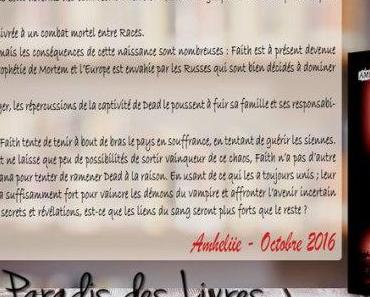 ivrée à un combat mortel entre Races.
mais les conséquences de cette naissance sont nombreuses : Faith est à présent devenue
ophétie de Mortem et l'Europe est envahie par les Russes qui sont bien décidés à dominer
ger, les répercussions de la captivité de Dead le poussent à fuir sa famille et ses responsabi-
Faith tente de tenir à bout de bras le pays en souffrance, en tentant de guérir les siennes.
t ne laisse que peu de possibilités de sortir vainqueur de ce chaos, Faith n'a pas d'autre
ana pour tenter de ramener Dead à la raison. En usant de ce qui les a toujours unis ; leur
a suffisamment fort pour vaincre les démons du vampire et affronter l'avenir incertain
secrets et révélations, est-ce que les liens du sang seront plus forts que le reste ?
Amheliie - Octobre 2016
Paradis des Livres